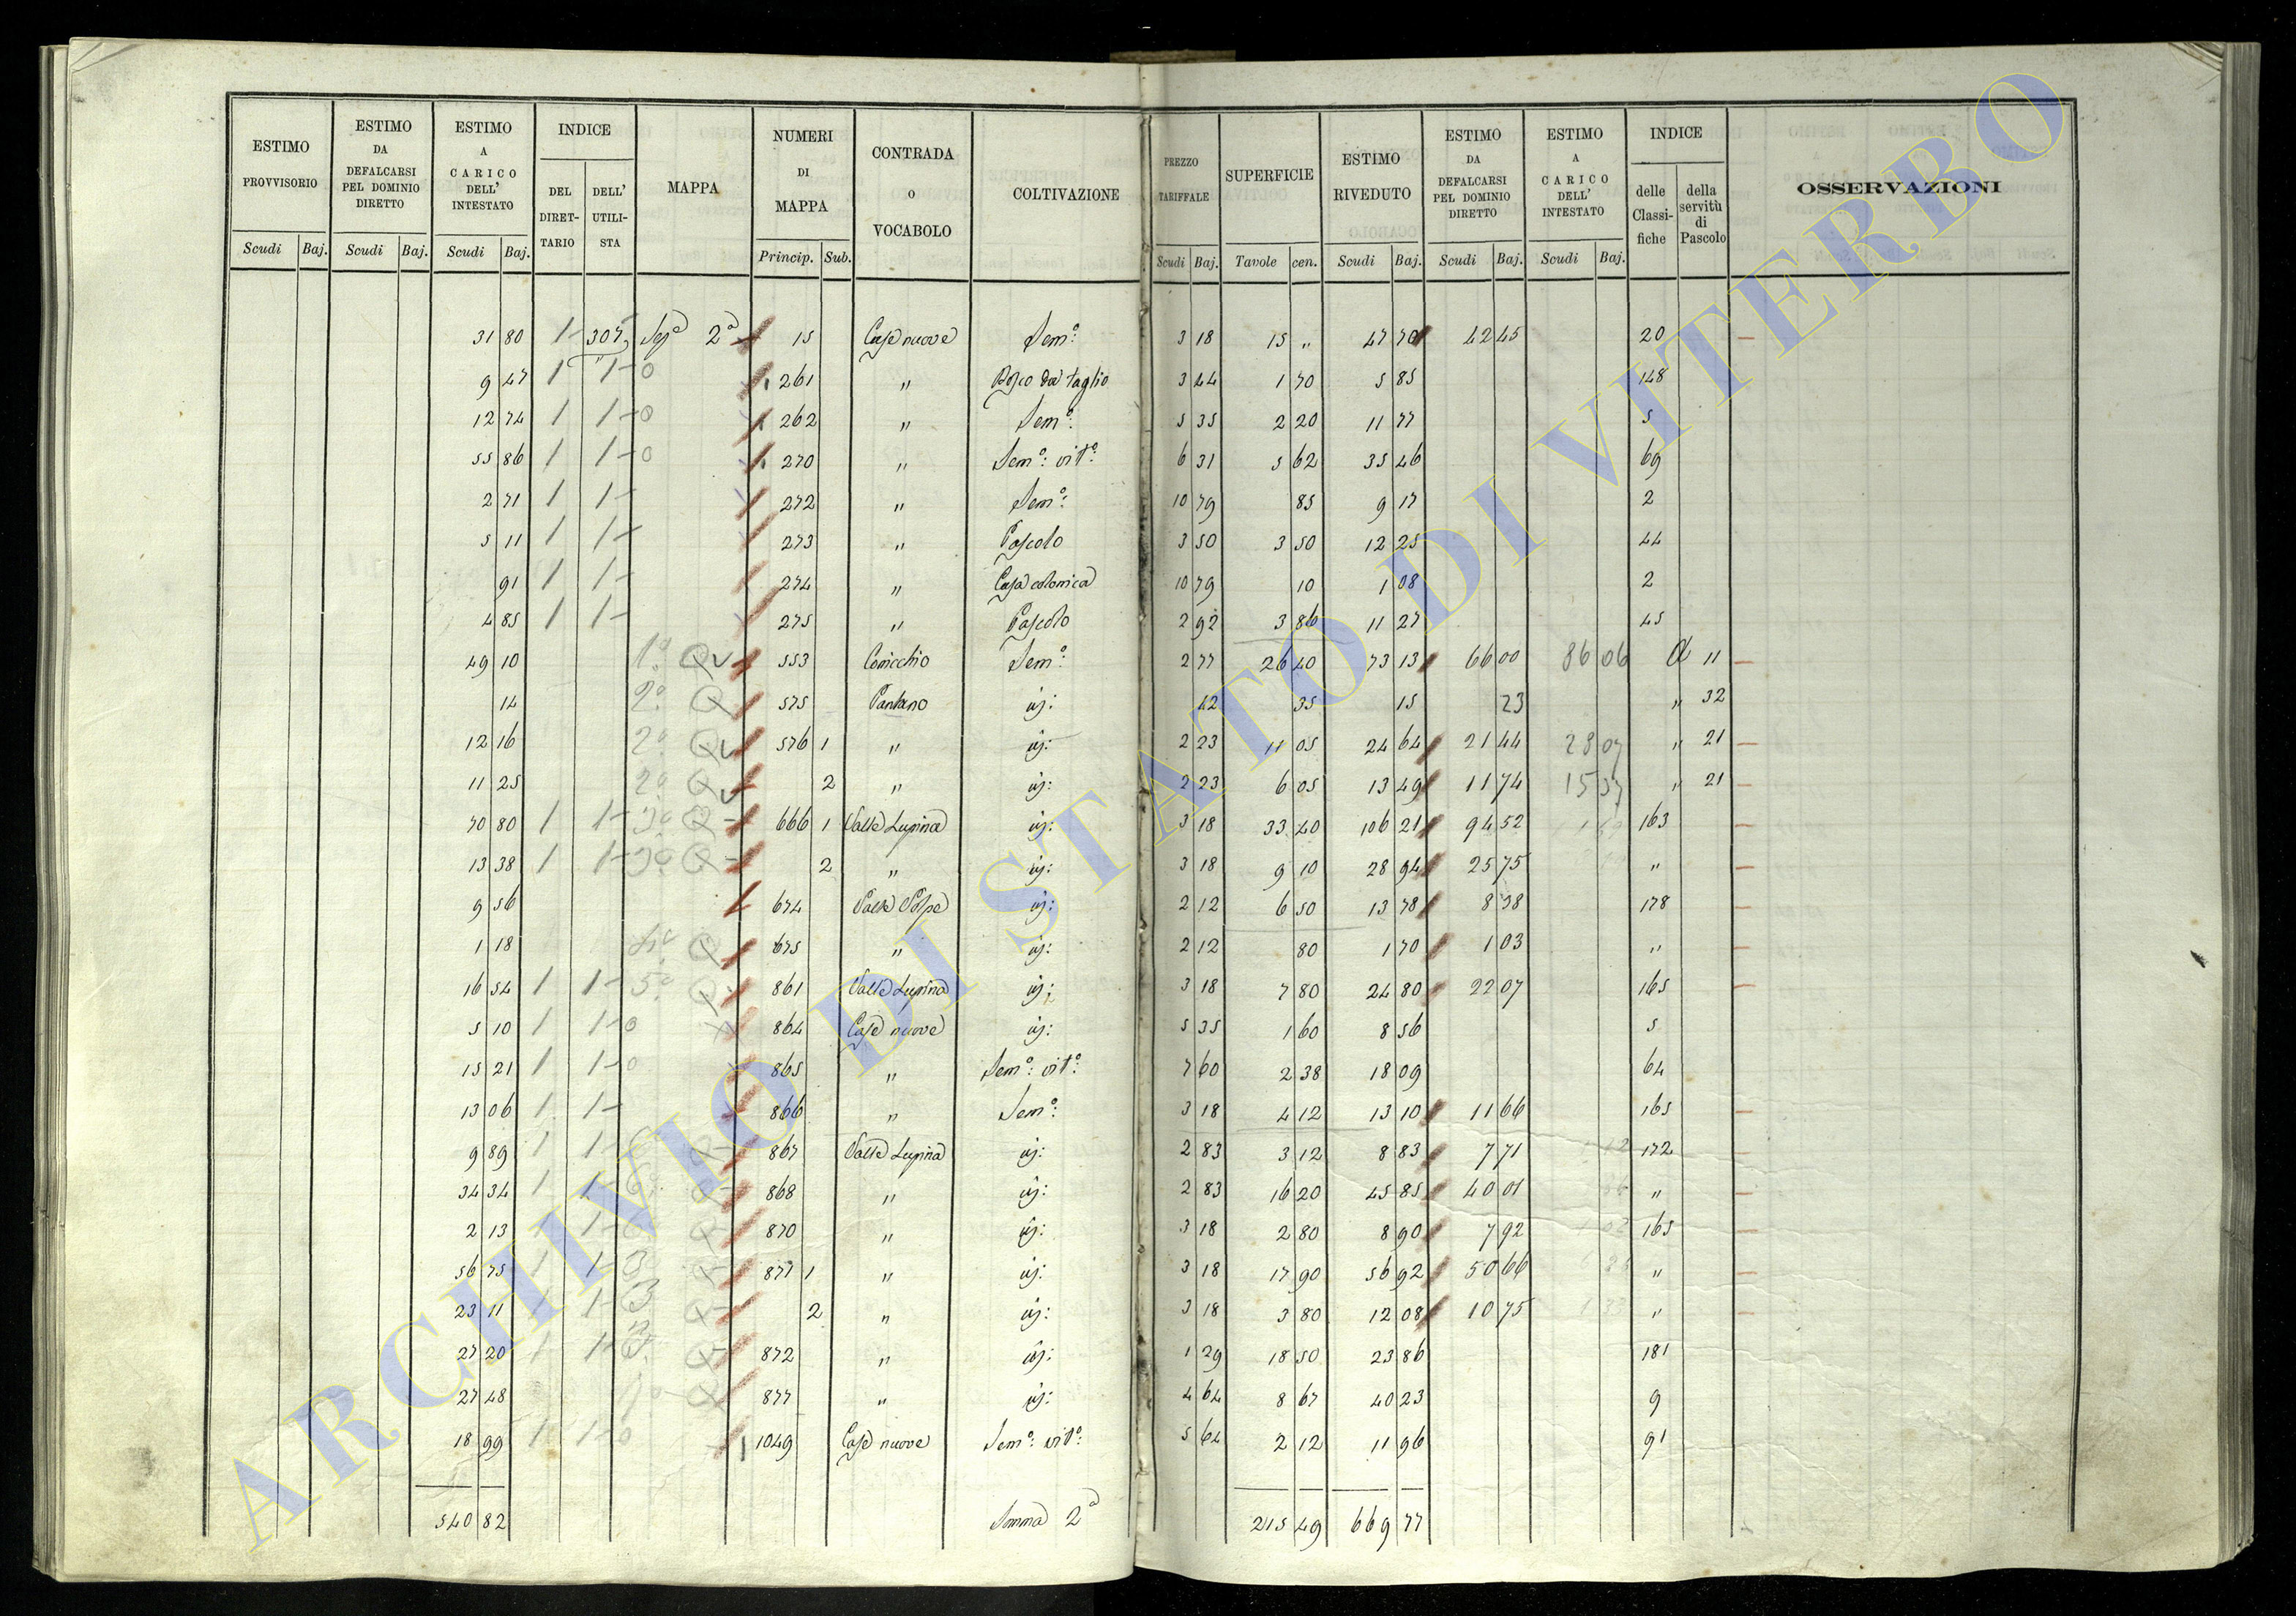 ESTIMO PROVVISORIO | ESTIMO DA DEFALCARSI PEL DOMINIO DIRETTO | ESTIMO A CARICO DELL' INTESTATO | INDICE DEL DIRET-TARIO | DELL' UTILI-STA | MAPPA | NUMERI DI MAPPA | CONTRADA O VOCABOLO | COLTIVAZIONE | PREZZO TARIFFALE | SUPERFICIE | ESTIMO RIVEDUTO | ESTIMO DA DEFALCARSI PEL DOMINIO DIRETTO | ESTIMO A CARICO DELL' INTESTATO | INDICE delle Classi-fiche | della servitù di Pascolo | OSSERVAZIONI
Scudi | Baj. | Scudi | Baj. | Scudi | Baj. | Princip. | Sub. | Scudi | Baj. | Tavole | cen. | Scudi | Baj. | Scudi | Baj. | Scudi | Baj.
31 80 | 1 | 305 | Sez.ª 2ª | 15 | Case nuove | Sem.º | 3 18 | 15 " | 47 70 | 42 45 | 20
9 47 | 1 | 1-0 | 261 | " | Bosco da taglio | 3 44 | 1 70 | 5 85 | 148
12 74 | 1 | 1-0 | 262 | " | Sem.º | 5 35 | 2 20 | 11 77 | 5
55 86 | 1 | 1-0 | 270 | " | Sem.º: vit.º: | 6 31 | 5 62 | 35 46 | 69
2 71 | 1 | 1- | 272 | " | Sem.º | 10 79 | 85 | 9 17 | 2
5 11 | 1 | 1- | 273 | " | Pascolo | 3 50 | 3 50 | 12 25 | 44
91 | 1 | 1- | 274 | " | Casa colonica | 10 79 | 10 | 1 08 | 2
4 85 | 1 | 1- | 275 | " | Pascolo | 2 92 | 3 86 | 11 27 | 45
49 10 | 1º Q | 553 | Conicchio | Sem.º | 2 77 | 26 40 | 73 13 | 66 00 | 86 06 | a 11
14 | 2º Q | 575 | Pantano | id: | 42 | 35 | 15 | 23 | " 32
12 16 | 2º Q | 576 1 | " | id: | 2 23 | 11 05 | 24 64 | 21 44 | 28 07 | " 21
11 25 | 2º Q | 2 | " | id: | 2 23 | 6 05 | 13 49 | 11 74 | 15 37 | " 21
70 80 | 1 | 1- | 3º Q | 666 1 | Valle Lupina | id: | 3 18 | 33 40 | 106 21 | 94 52 | 163
13 38 | 1 | 1- | 3º Q | 2 | " | id: | 3 18 | 9 10 | 28 94 | 25 75 | "
9 56 | 674 | Valle Volpe | id: | 2 12 | 6 50 | 13 78 | 8 38 | 178
1 18 | 4º Q | 675 | " | id: | 2 12 | 80 | 1 70 | 1 03 | "
16 54 | 1 | 1- | 5º Q | 861 | Valle Lupina | id: | 3 18 | 7 80 | 24 80 | 22 07 | 165
5 10 | 1 | 1-0 | 864 | Case nuove | id: | 5 35 | 1 60 | 8 56 | 5
15 21 | 1 | 1-0 | 865 | " | Sem.º: vit.º: | 7 60 | 2 38 | 18 09 | 64
13 06 | 1 | 1- | 866 | " | Sem.º: | 3 18 | 4 12 | 13 10 | 11 66 | 165
9 89 | 1 | 1- | 867 | Valle Lupina | id: | 2 83 | 3 12 | 8 83 | 7 71 | 172
34 34 | 1 | 1- | 868 | " | id: | 2 83 | 16 20 | 45 85 | 40 01 | "
2 13 | 1 | 1- | 870 | " | id: | 3 18 | 2 80 | 8 90 | 7 92 | 165
56 75 | 1 | 1- | 871 1 | " | id: | 3 18 | 17 90 | 56 92 | 50 66 | "
23 11 | 1 | 1- | 2 | " | id: | 3 18 | 3 80 | 12 08 | 10 75 | "
27 20 | 1 | 1- | 872 | " | id: | 1 29 | 18 50 | 23 86 | 181
27 48 | 877 | " | id: | 4 64 | 8 67 | 40 23 | 9
18 99 | 1 | 1-0 | 1049 | Case nuove | Sem.º: vit.º: | 5 64 | 2 12 | 11 96 | 91
540 82 | Somma 2ª | 215 49 | 669 77
ARCHIVIO DI STATO DI VITERBO